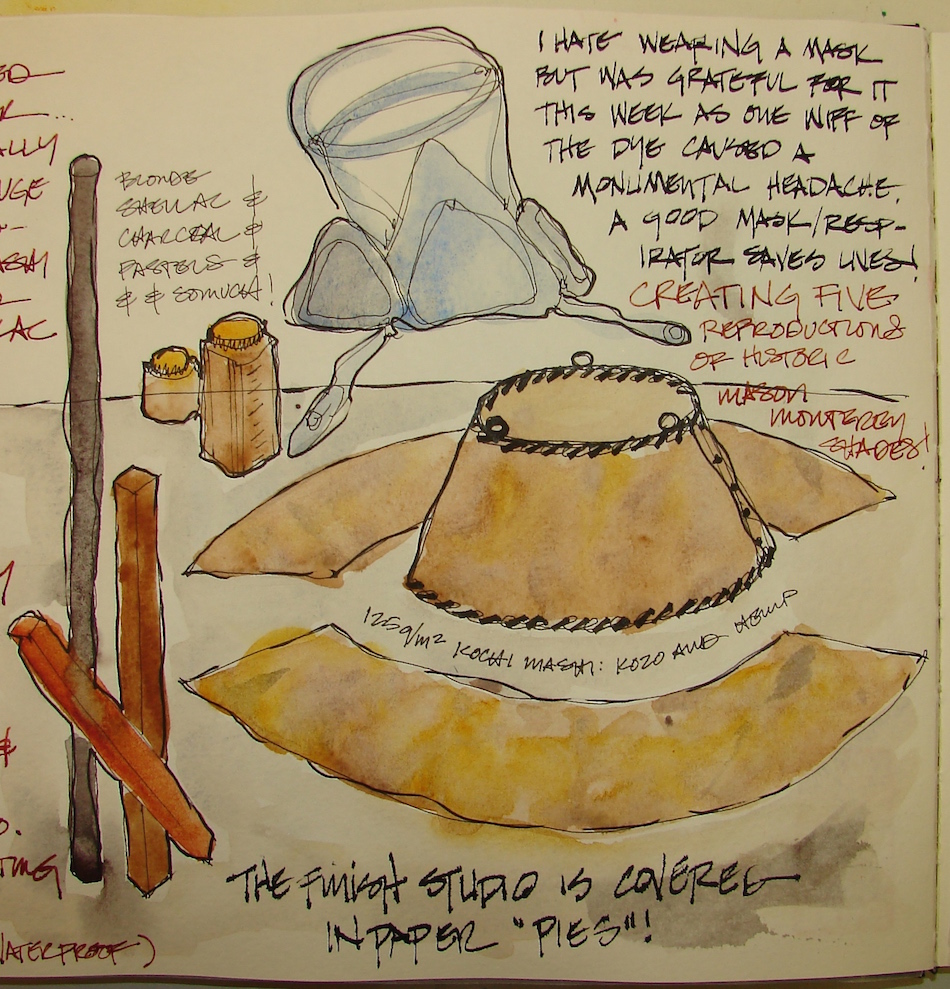 I HATE WEARING A MASK
BUT WAS GRATEFUL FOR IT
THIS WEEK AS ONE WIFF OF
THE DYE CAUSED A
MONUMENTAL HEADACHE.
A GOOD MASK/RESP-
IRATOR SAVES LIVES!
CREATING FIVE
REPRODUCTIONS
OF HISTORIC
MASON
MONTEREY
SHADES!
BLONDE
SHELLAC &
CHARCOAL &
PASTELS &
& & SO MUCH!
125g/m2 KOCHI MASHI: KOZO AND HEMP
THE FINISH STUDIO IS COVERED
IN PAPER "PIES"!
ED
K...
ALLY
UGE
LAC
&
O.
TING
WATERPROOF)